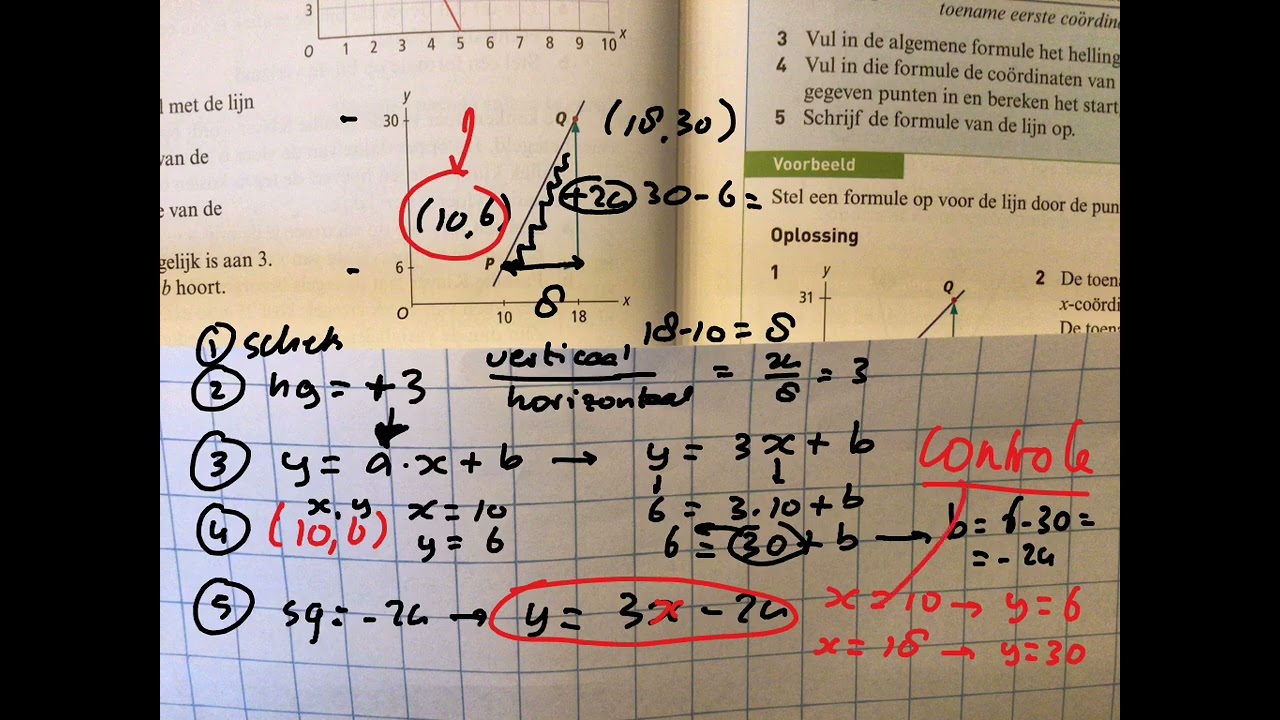 3
O 1 2 3 4 5 6 7 8 9 10 x
l met de lijn
van de
e van de
gelijk is aan 3.
b hoort.
y
30
Q (18,30)
(10,6)
+24 30-6=
6
P
8
O 10 18 x
18-10=8
toename eerste coördin
3 Vul in de algemene formule het helling
4 Vul in die formule de coördinaten van
gegeven punten in en bereken het start
5 Schrijf de formule van de lijn op.
Voorbeeld
Stel een formule op voor de lijn door de pun
Oplossing
1 y
31
Q
2 De toen
x-coördi
De toena
① schets
② hg = +3 verticaal / horizontaal = 24/8 = 3
③ y = a·x + b → y = 3x + b
controle
④ (10,6) x, y x = 10 6 = 3·10 + b
y = 6 6 = 30 + b → b = 6-30 =
= -24
⑤ sg = -24 → y = 3x - 24
x = 10 → y = 6
x = 18 → y = 30